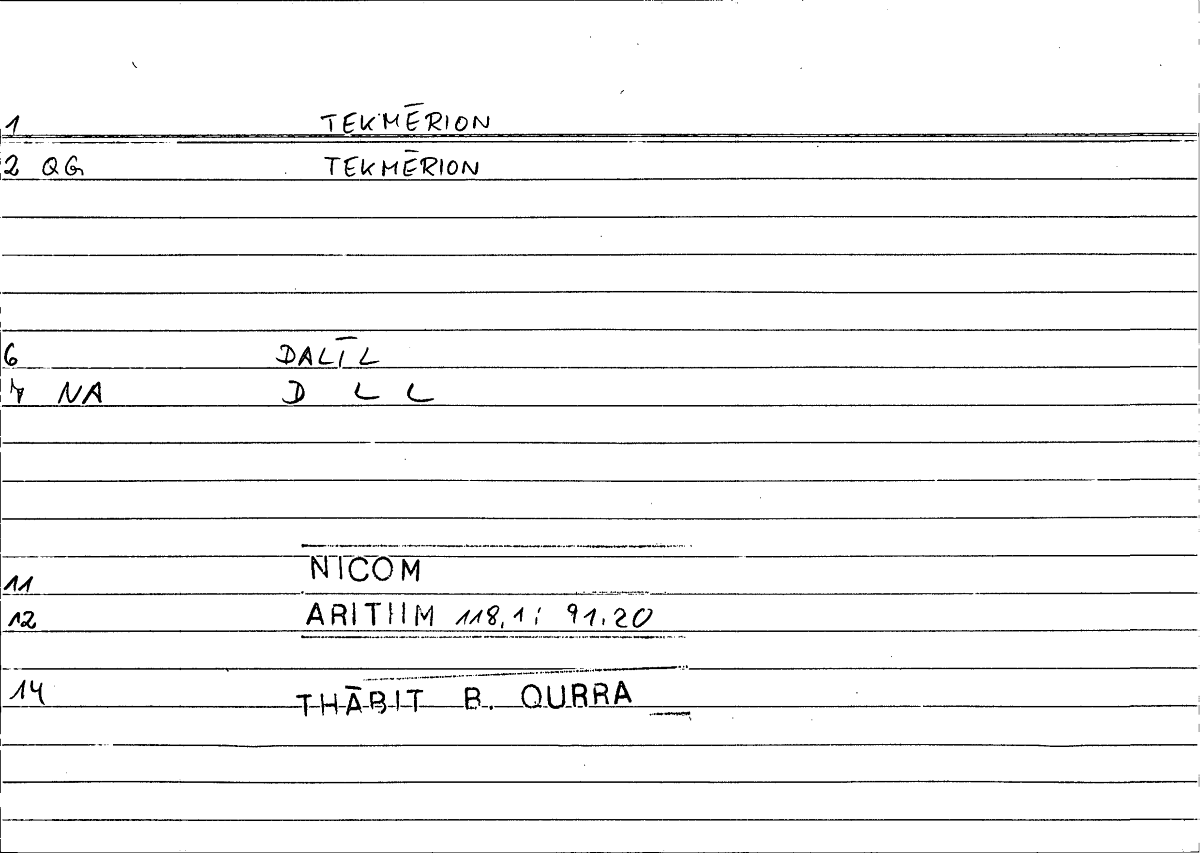 1 TEKMĒRION
2 QG TEKMĒRION
6 DALĪL
7 NA D L L
11 NICOM
12 ARITHM 118,1; 91.20
14 THĀBIT B. QURRA